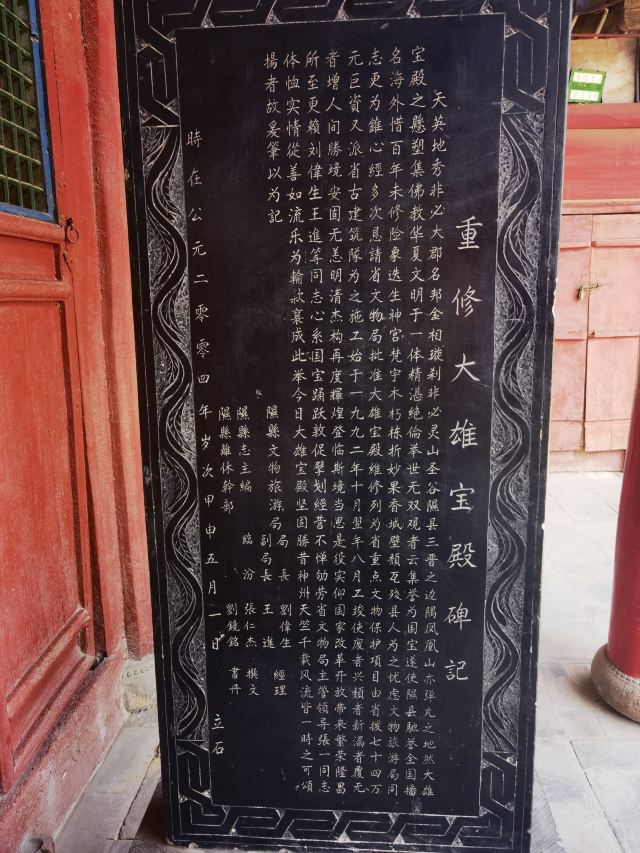 重修大雄宝殿碑记
天英地秀非必大郡名邦金相璇刹非必灵山圣谷隰县三晋之边隅凤凰山亦弹丸之地然大雄
宝殿之悬塑集佛教华夏文明于一体精湛绝伦举世无双观者云集誉为国宝遂使隰县驰誉全国播
名海外惜百年未修险象迭生神宫梵宇木朽栋折妙果香城壁颓瓦残县人为之忧虑文物旅游局同
志更为錐心经多次恳請省文物局批准大雄宝殿維修列为省重点文物保护項目由省拨七十四万
元巨資又派省古建筑隊为之施工始于一九九二年十月翌年八月工竣使废者兴頹者新漏者覆无
者增人间勝境安固无恙明清杰构再度輝煌登临斯境当思是役实仰国家改革开放带来繁荣隆昌
所至更賴刘偉生王進等同志心系国宝踊跃敦促擘划經营不惮劬劳省文物局主管领导張一同志
体恤实情從善如流乐为輸款襄成此举今日大雄宝殿坚固勝昔神州天竺千載风流皆一時之可頌
揚者故爰筆以为記
隰縣文物旅游局 局長 劉偉生 經理
副局長 王進
隰縣志主編 臨汾 張仁杰 撰文
隰縣離休幹部 劉鏡銘 書丹
時在公元二零零四年岁次甲申五月一日 立石